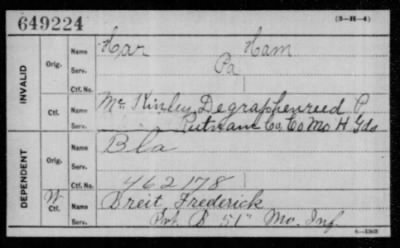 649224
(3-H-4)
INVALID
Orig. Name Har Ham
Serv. Pa
Ctf. No.
Ctf. Name McKinley, Degraphenreed P.
Serv. Putnam Co. Co Mo H Gds
DEPENDENT
Orig. Name Bla
Serv.
Ctf. No. 462178
W Ctf. Name Breit, Frederick
Serv. Pvt. B 51" Mo. Inf